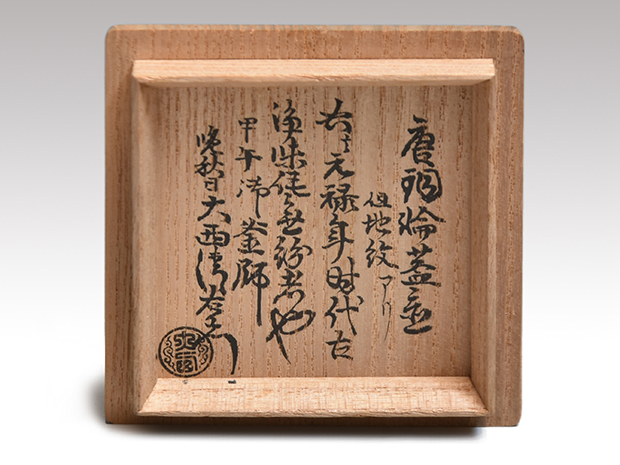 唐銅輪蓋置
但地紋アリ
右ハ元禄年時代古
浄味作無紛者也
甲午 御釜師
晩秋日 大西清右衛門